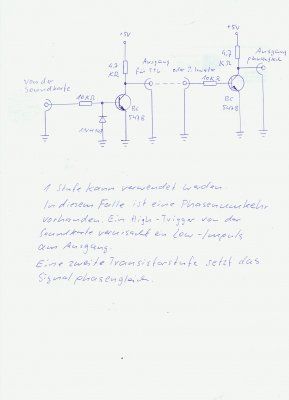 +5V
+5V
4,7
KΩ
Ausgang
für TTL
oder 2. Inverter
4,7
KΩ
Ausgang
phasengleich
von der
Soundkarte
10KΩ
10KΩ
BC
547B
BC
547B
1 Stufe kann verwendet werden.
In diesem Falle ist eine Phasenumkehr
vorhanden. Ein High-Trigger von der
Soundkarte verursacht en Low-Impuls
am Ausgang.
Eine zweite Transistorstufe setzt das
Signal phasengleich.